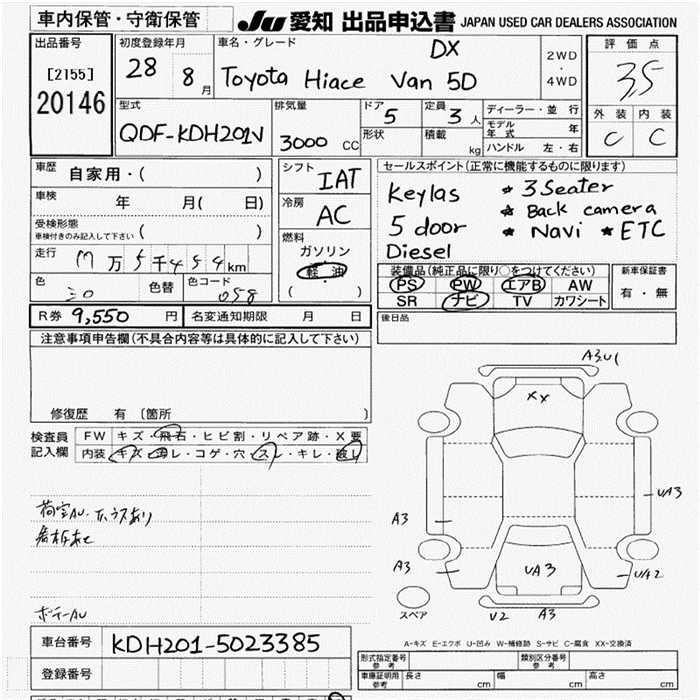 車内保管・守衛保管
JU 愛知 出品申込書 JAPAN USED CAR DEALERS ASSOCIATION
出品番号
[2155]
20146
初度登録年月
28 8月
車名・グレード
DX
Toyota Hiace Van 5D
2WD
・
4WD
評価点
3.5
外装 内装
C C
型式
QDF-KDH201V
排気量
3000 CC
ドア
5
形状
定員
3人
積載
kg
ディーラー・並行
モデル年式 年
ハンドル 左・右
車歴
自家用・( )
車検
年 月( 日)
受検形態
車検付きのみ記入して下さい ( )
走行
万5千454km
色
色替
色コード
058
シフト
IAT
冷房
AC
燃料
ガソリン
軽油
( ・ )
セールスポイント(正常に機能するものに限ります)
Keylas * 3 Seater
5 door * Back camera
Diesel * Navi * ETC
装備品(純正品に限り○をつけてください)
PS PW エアB AW
SR ナビ TV カワシート
新車保証書
有・無
R券 9,550 円
名変通知期限 月 日
後日品
注意事項申告欄(不具合内容等は具体的に記入して下さい)
修復歴 有 [箇所 ]
検査員
記入欄
FW キズ・飛石・ヒビ割・リペア跡・X要
内装 キズ・ヨレ・コゲ・穴・スレ・キレ・破レ
荷室AU
ボデーAU
A3.U1
XX
UA3
A3
A3
UA3
UA2
U2 A3
スペア
A-キズ E-エクボ U-凹み W-補修跡 S-サビ C-腐食 XX-交換済
車台番号 KDH201-5023385
登録番号
形式指定番号
参考
類別区分番号
参考
車庫証明用
参考
長さ cm
幅 cm
高さ cm